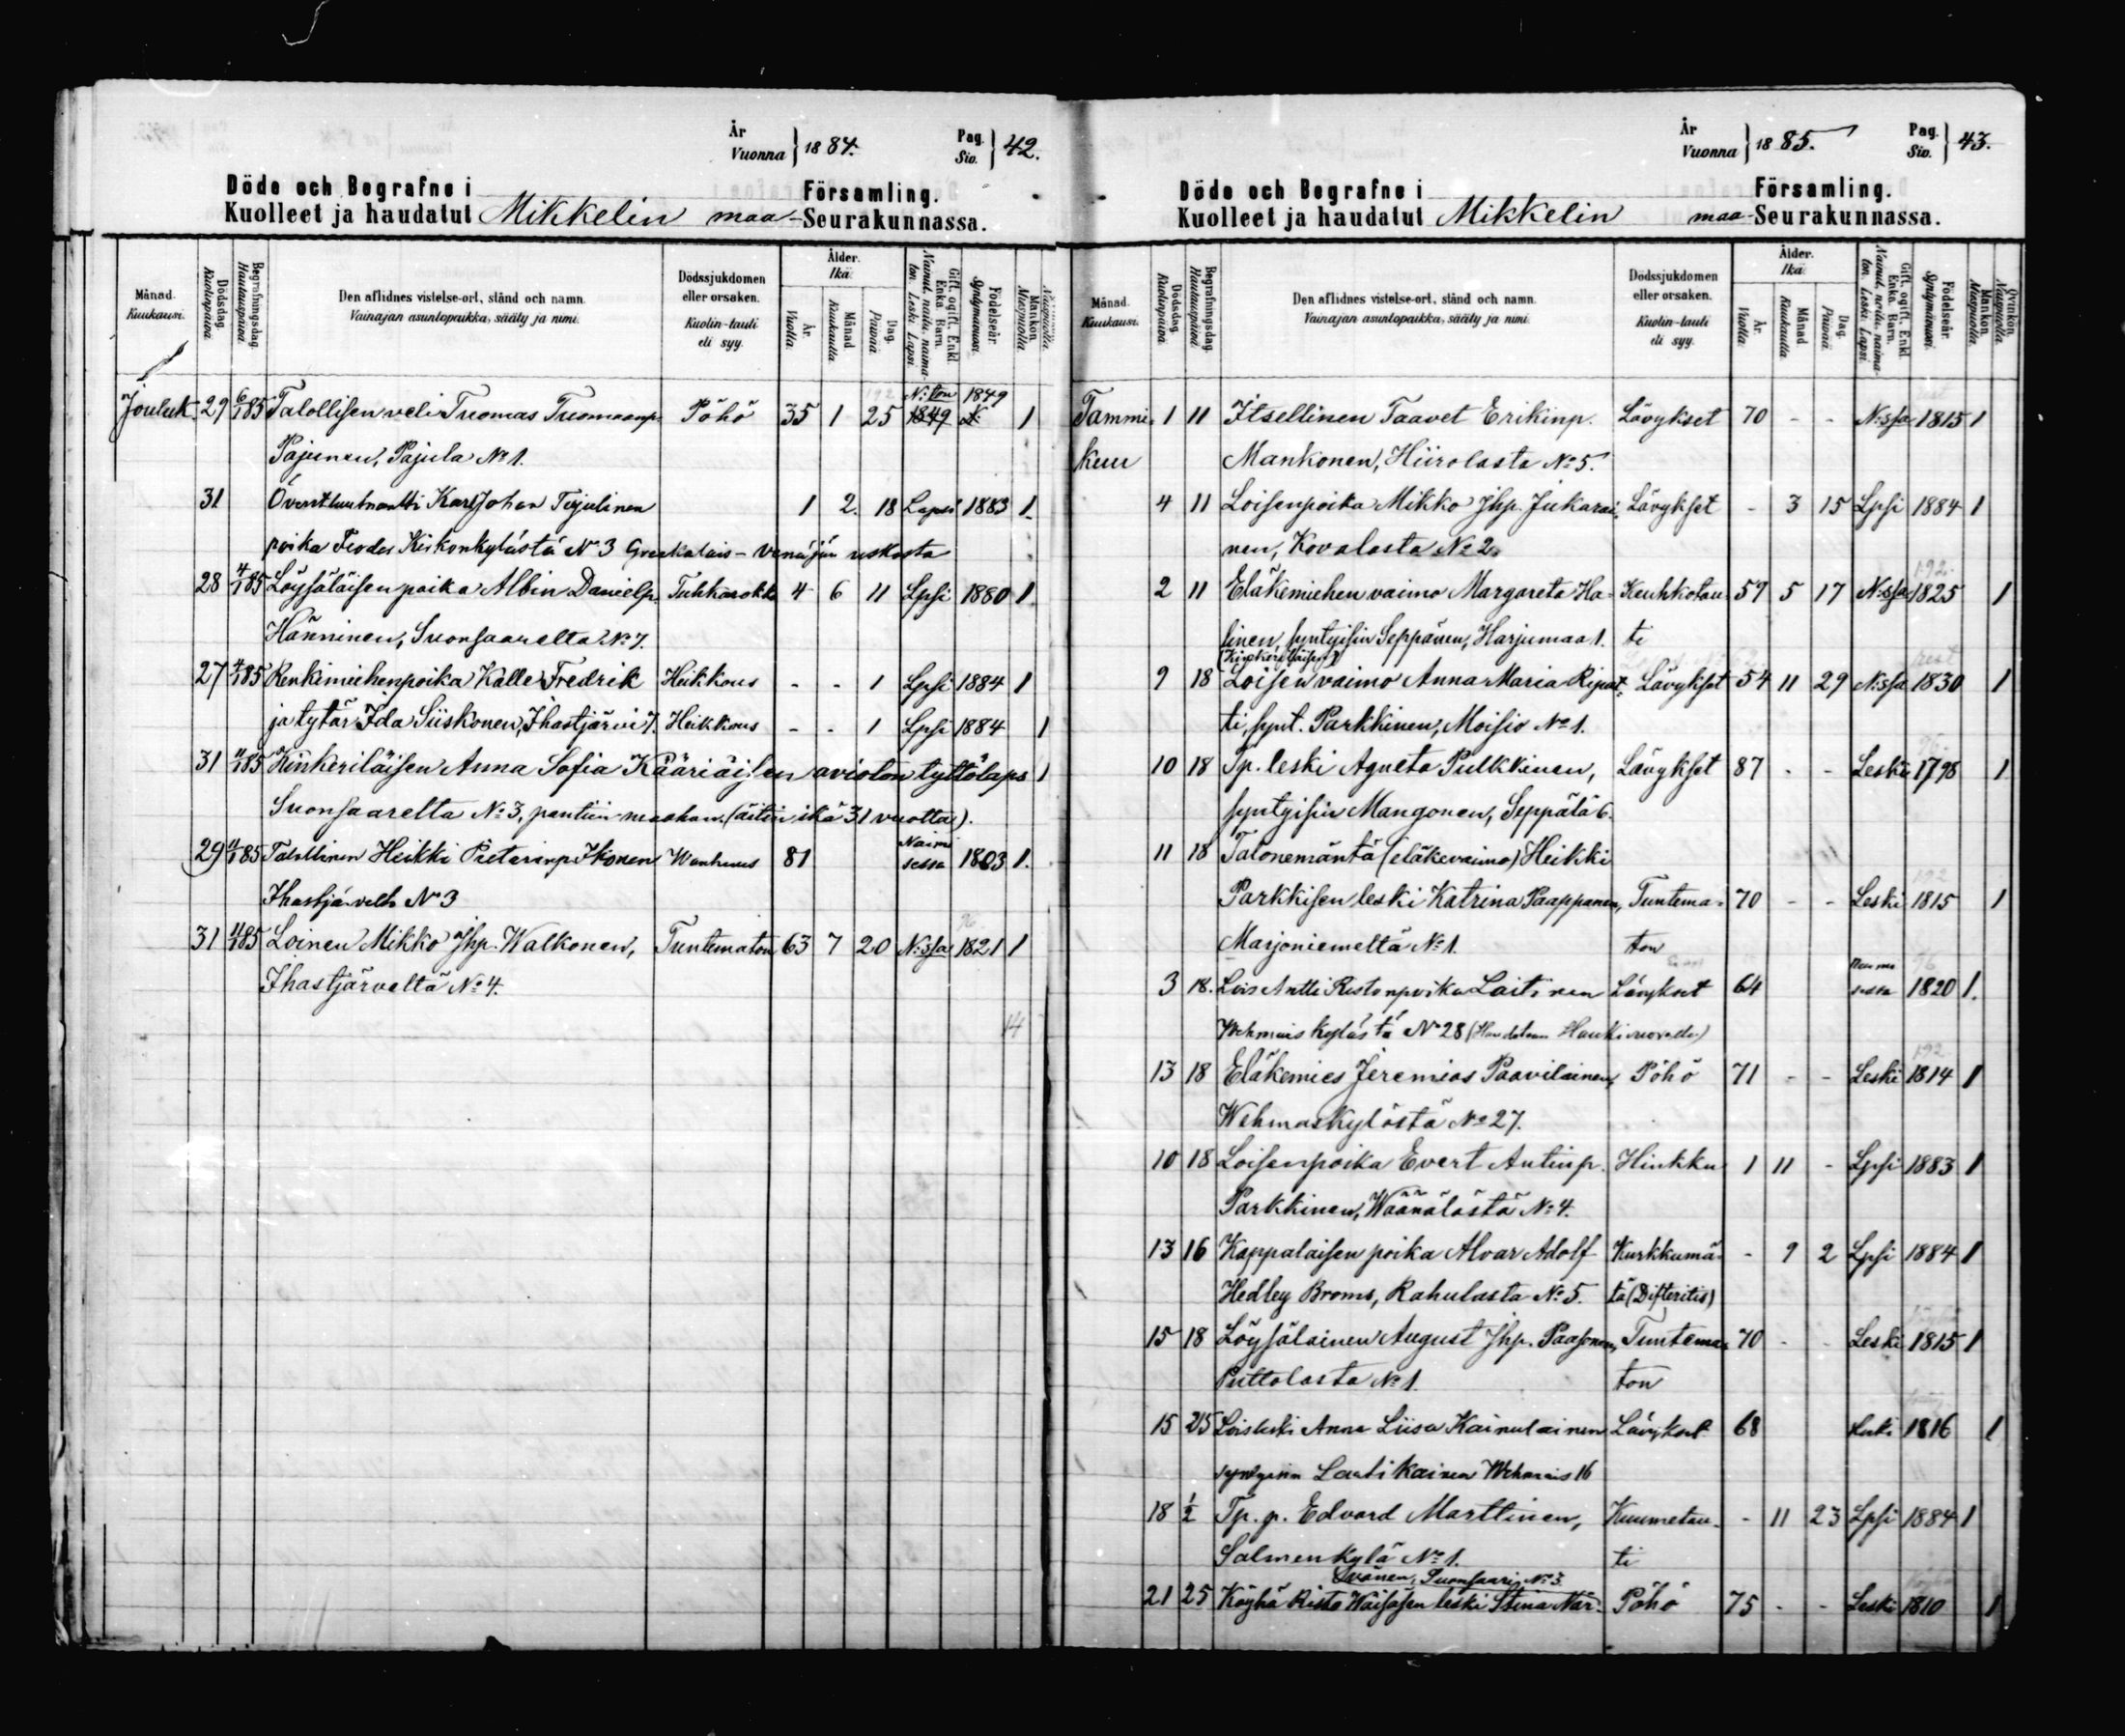 År
Vuonna } 1884. Pag. Siv. } 42.
Döde och Begrafne i Församling.
Kuolleet ja haudatut Mikkelin maa-Seurakunnassa.
Månad. Kuukausi. Dödsdag. Kuolinpäivä. Begrafningsdag. Hautauspäivä. Den aflidnes vistelse-ort, stånd och namn. Vainajan asuntopaikka, sääty ja nimi. Dödssjukdomen eller orsaken. Kuolin-tauti eli syy. Ålder. Ikä. År. Vuotta. Månad Kuukautta. Dag. Päivää. Gift, ogift, Enkl. Enka Barn. Nainut, naitu, naimaton. Leski. Lapsi. Födelseår. Syntymävuosi. Mankön. Miespuolia.
N:ton 1849
Jouluk. 29 6/1 85 Talollisen veli Tuomas Tuomaanp. Pöhö 35 1 25 1849 1
Pajunen, Pajula No 1.
31 Överstluutnantti Karl Johan Tojulinen 1 2. 18 Lapsi 1883 1.
poika Feodor Kirkonkylästä No 3 Greekalais-venäjän uskosta
28 4/1 85 Löysäläisen poika Albin Danielp. Tuhkarokko 4 6 11 Lpsi 1880 1
Hänninen, Suonsaarelta No 7.
27 4/1 85 Renkimiehenpoika Kalle Fredrik Heikkous - - 1 Lpsi 1884 1
ja tytär Ida Siiskonen, Ihastjärvi 7. Heikkous - - 1 Lpsi 1884 1
31 11/1 85 Kinkeriläisen Anna Sofia Kääriäisen avioton tyttölaps 1
Suonsaarelta No 3, pantiin maahan. (äitin ikä 31 vuotta).
29 11/1 85 Talollinen Heikki Pietarinp Ikonen Wanhuus 81 Naimisessa 1803 1.
Ihastjärveltä No 3
31 11/1 85 Loinen Mikko Jhp. Walkonen, Tuntematon 63 7 20 N:ssa 1821 1
Ihastjärveltä No 4.
14
År
Vuonna } 1885. Pag. Siv. } 43.
Döde och Begrafne i Församling.
Kuolleet ja haudatut Mikkelin maa-Seurakunnassa.
Månad. Kuukausi. Dödsdag. Kuolinpäivä. Begrafningsdag. Hautauspäivä. Den aflidnes vistelse-ort, stånd och namn. Vainajan asuntopaikka, sääty ja nimi. Dödssjukdomen eller orsaken. Kuolin-tauti eli syy. Ålder. Ikä. År. Vuotta. Månad Kuukautta. Dag. Päivää. Gift, ogift, Enkl. Enka Barn. Nainut, naitu, naimaton. Leski. Lapsi. Födelseår. Syntymävuosi. Mankön. Miespuolia. Qvinkön. Naispuolia.
Tammi- 1 11 Itsellinen Taavet Erikinp. Lävykset 70 - - N:ssa 1815 1
kuu Mankonen, Hiirolasta No 5.
4 11 Loisenpoika Mikko Jhp. Jukarai- Lävykset - 3 15 Lpsi 1884 1
nen, Kovalasta No 2.
2 11 Eläkemiehen vaimo Margareta Ha- Keuhkotau- 59 5 17 N:ssa 1825 1
linen, syntyisin Seppänen, Harjumaa 1. ti
9 18 Loisen vaimo Anna Maria Ripat- Lävykset 54 11 29 N:ssa 1830 1
ti, synt. Parkkinen, Moisio No 1.
10 18 Tp. leski Agneta Pulkkinen, Lävykset 87 - - Leski 1798 1
syntyisin Mangonen, Seppälä 6.
11 18 Talonemäntä (eläkevaimo) Heikki
Parkkisen leski Katrina Paappanen, Tuntema- 70 - - Leski 1815 1
Marjoniemeltä No 1. ton
3 18. Lois Antti Ristonpoika Laitinen Lävykset 64 Naimisessa 1820 1.
Wehmaiskylästä No 28 (Haudataan Haukivuorella)
13 18 Eläkemies Jeremias Paavilainen, Pöhö 71 - - Leski 1814 1
Wehmaskylästä No 27.
10 18 Loisenpoika Evert Antinp. Hinkku 1 11 - Lpsi 1883 1
Parkkinen, Wäänälästä No 4.
13 16 Kappalaisen poika Alvar Adolf Kurkkumä- - 9 2 Lpsi 1884 1
Hedley Broms, Rahulasta No 5. tä (Difteritis)
15 18 Löysäläinen August Jhp. Paasonen, Tuntema- 70 - - Leski 1815 1
Puttolasta No 1. ton
15 25 Loisleski Anna Liisa Kainulainen Lävykset 68 Leski 1816 1
syntyisin Lautikainen Wehmais 16
18 1/2 Tp. p. Edvard Marttinen, Kuumetau- - 11 23 Lpsi 1884 1
Salmenkylä No 1. ti
Suonsaari No 3.
21 25 Köyhä Risto Häisäsen leski Stina När- Pöhö 75 - - Leski 1810 1